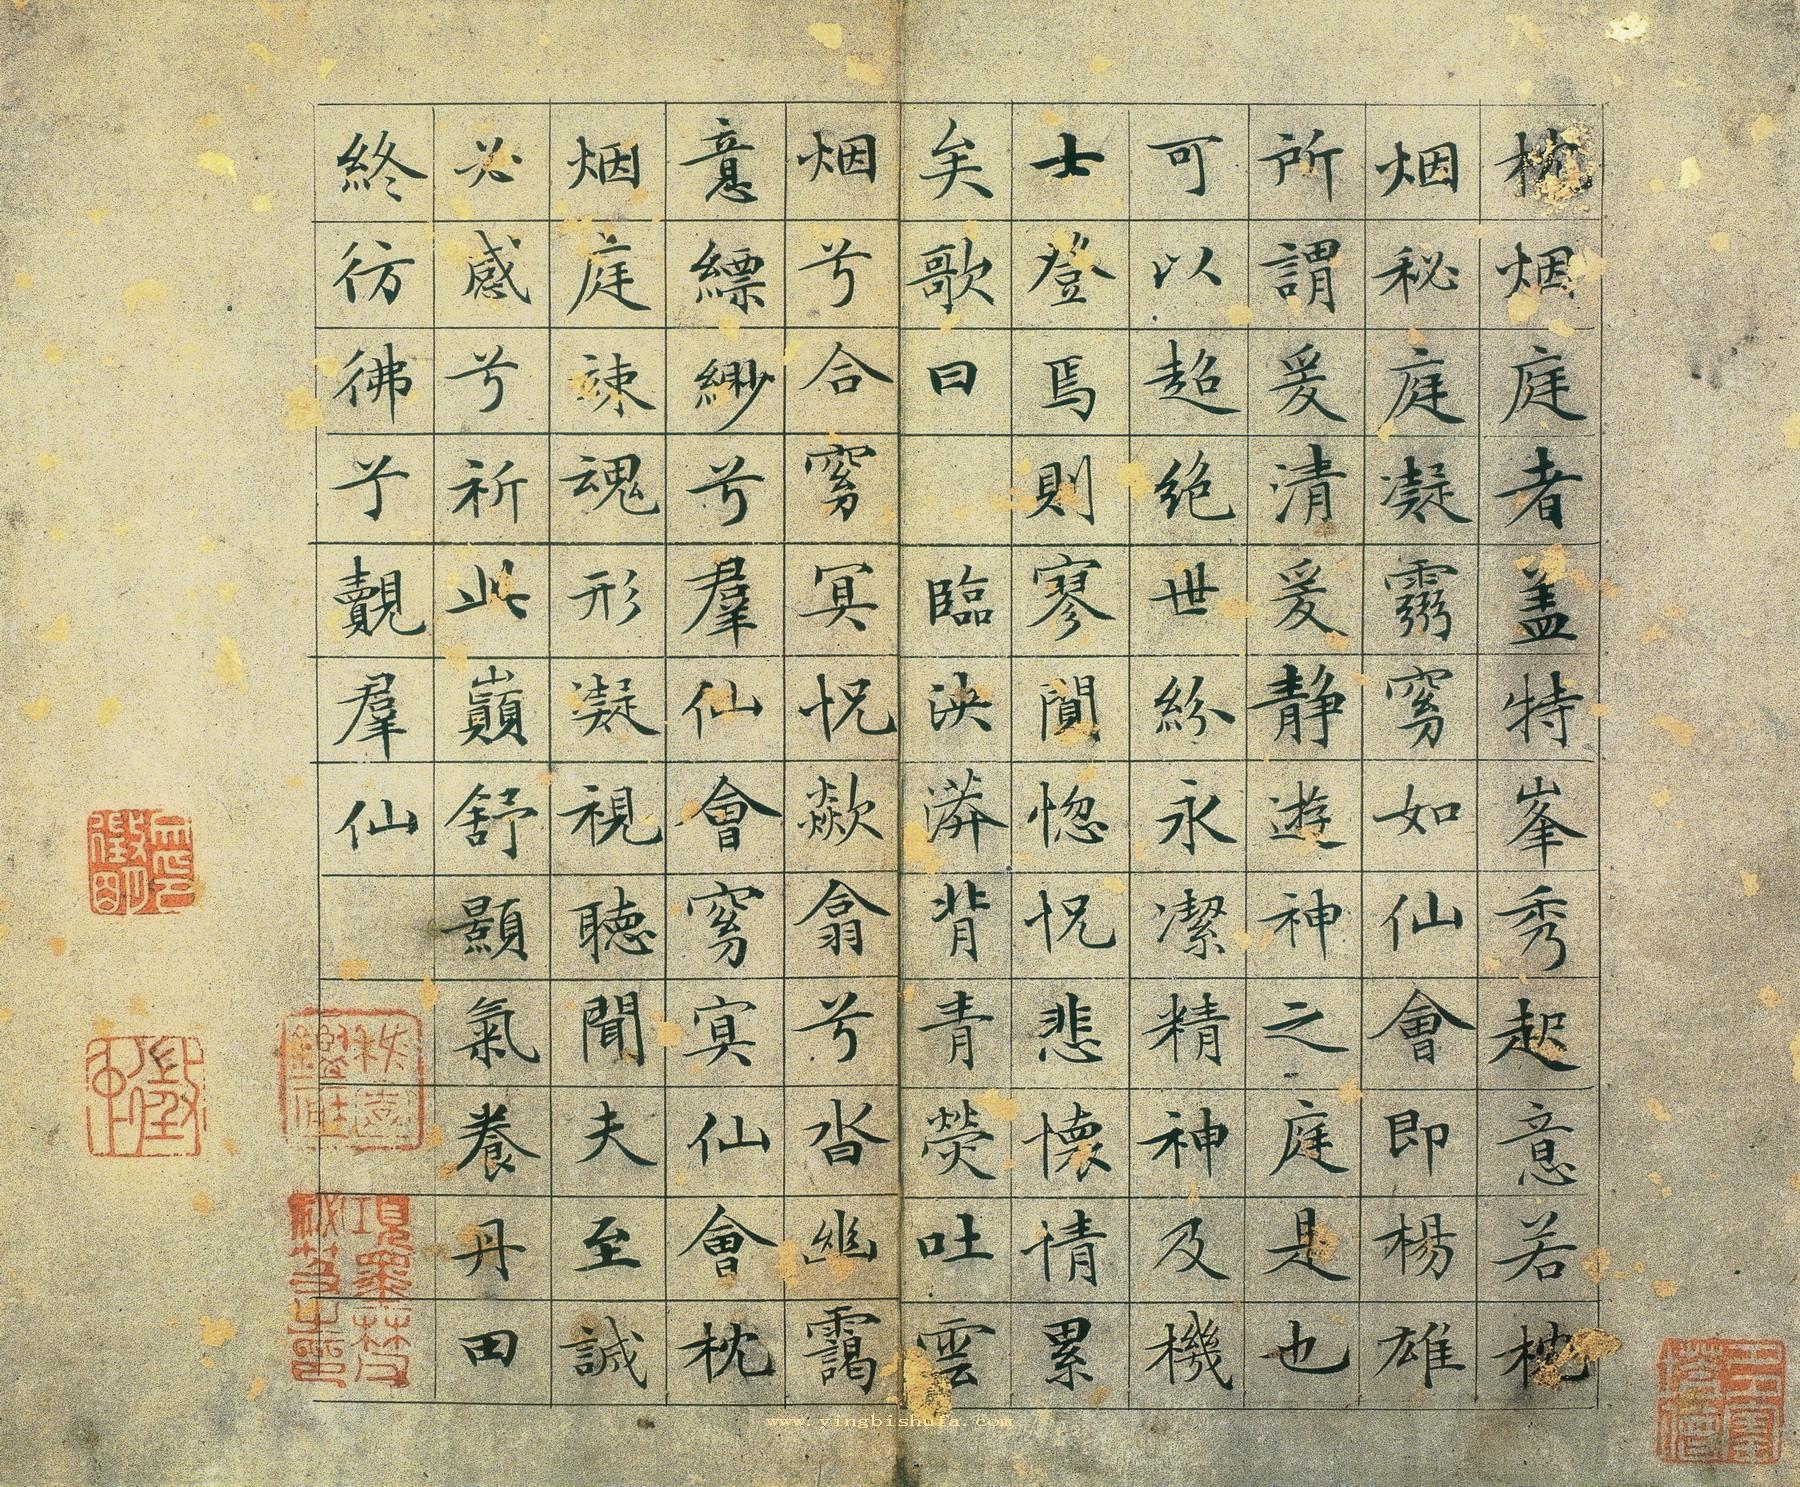 枕烟庭者盖特峯秀起意若枕
烟秘庭凝霛窅如仙會即楊雄
所謂爰清爰静遊神之庭是也
可以超絶世紛永潔精神及機
士登焉則寥閴惚怳悲懷情累
矣歌曰 臨泱漭背青熒吐雲
烟兮合窅冥怳歘翕兮沓幽靄
意縹緲兮羣仙會窅冥仙會枕
烟庭竦魂形凝視聴聞夫至誠
必感兮祈此巔舒顥氣養丹田
終彷彿兮覿羣仙
www.yingbishufa.com